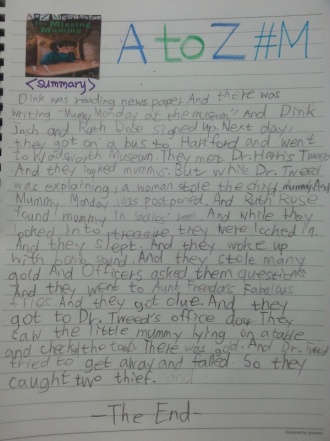 A to Z Mysteries
The Missing
Mummy
A to Z #M
<summary>
Dink was reading news paper. And there was
writing "Mummy Monday at the museum" And Dink
Josh and Ruth Rose signed up. Next day,
they got on a bus to Hartford and went
to Wadsworth Museum. They met Dr. Harris Tweed
And they looked mummys. But while Dr. Tweed
was explaining, a woman stole the child mummy. And
Mummy Monday was postponed. And Ruth Rose
found mummy in ladies' room. And while they
looked into treasure, they were locked in.
And they slept. And they woke up
with bonk sound. And they stole many
gold And Officers asked them questions
And they went to Aunt Freeda's Fabulous
fries And they got clue. And they
got to Dr. Tweed's office door They
saw the little mummy lying on a table
and checks the tomb There was gold. And Dr. Tweed
tried to get away and failed. So they
caught two thief.
-The End-